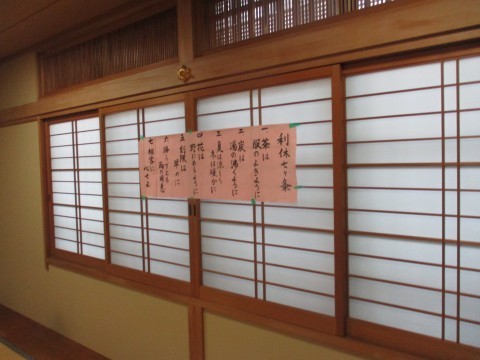 利休七ヶ条
一 茶は
服のよきように
二 炭は
湯の沸くように
三 夏は涼しく
冬は暖かに
四 花は
野にあるように
五 刻限は
早めに
六 降らずとも
雨の用意
七 相客に
心せよ